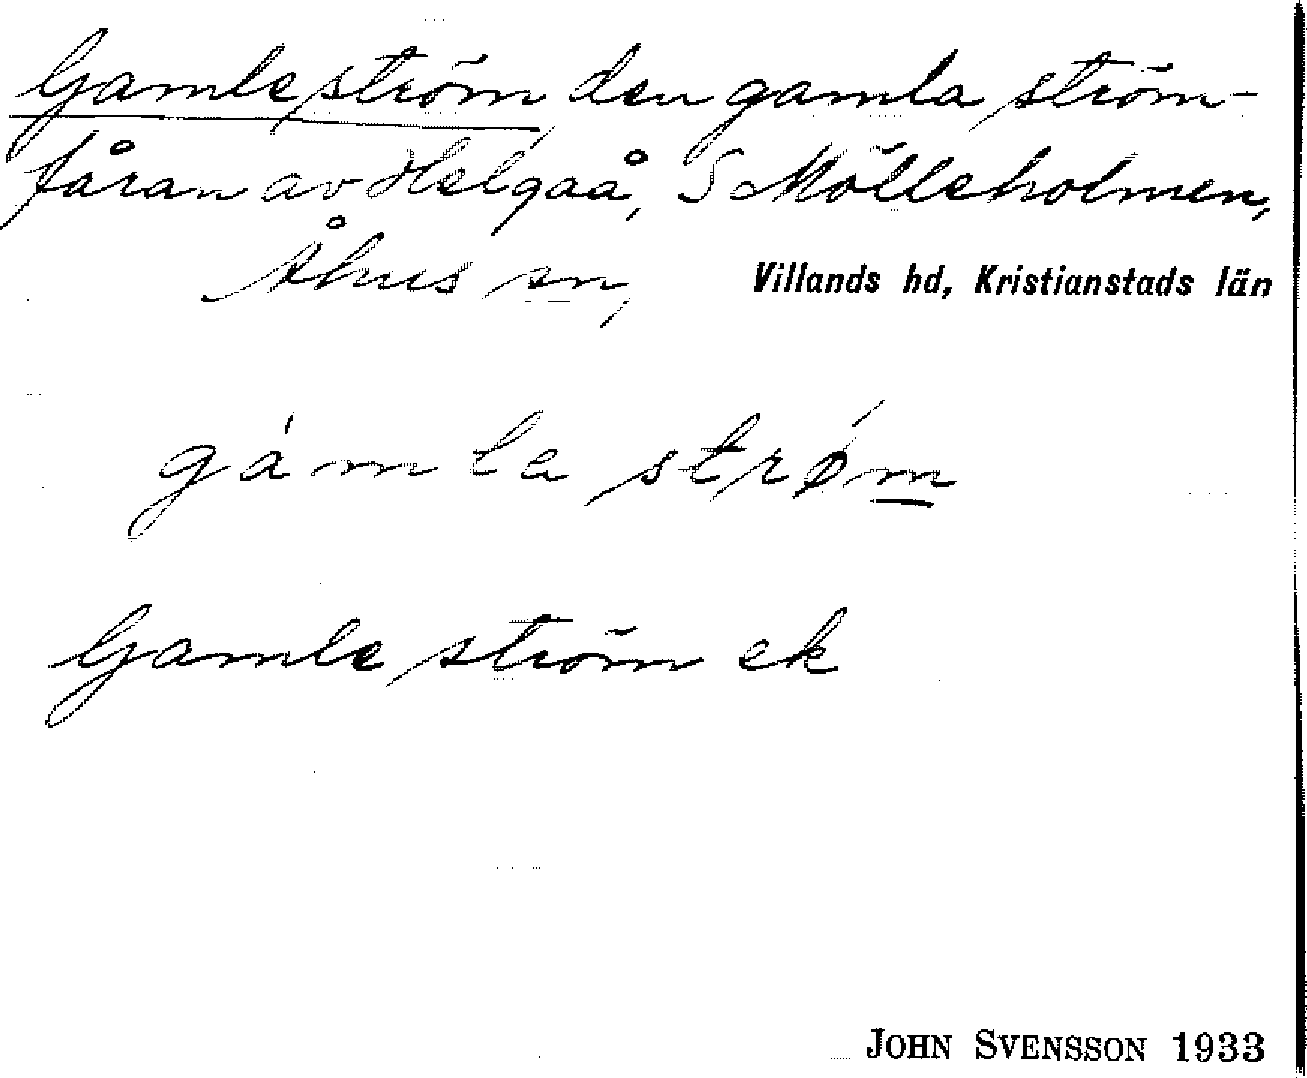 Gamleström, den gamla ström-
fåran av Helgaå, S Mölleholmen,
Åhus sn, Villands hd, Kristianstads län
gám la strǿm
Gamleström ek
JOHN SVENSSON 1933